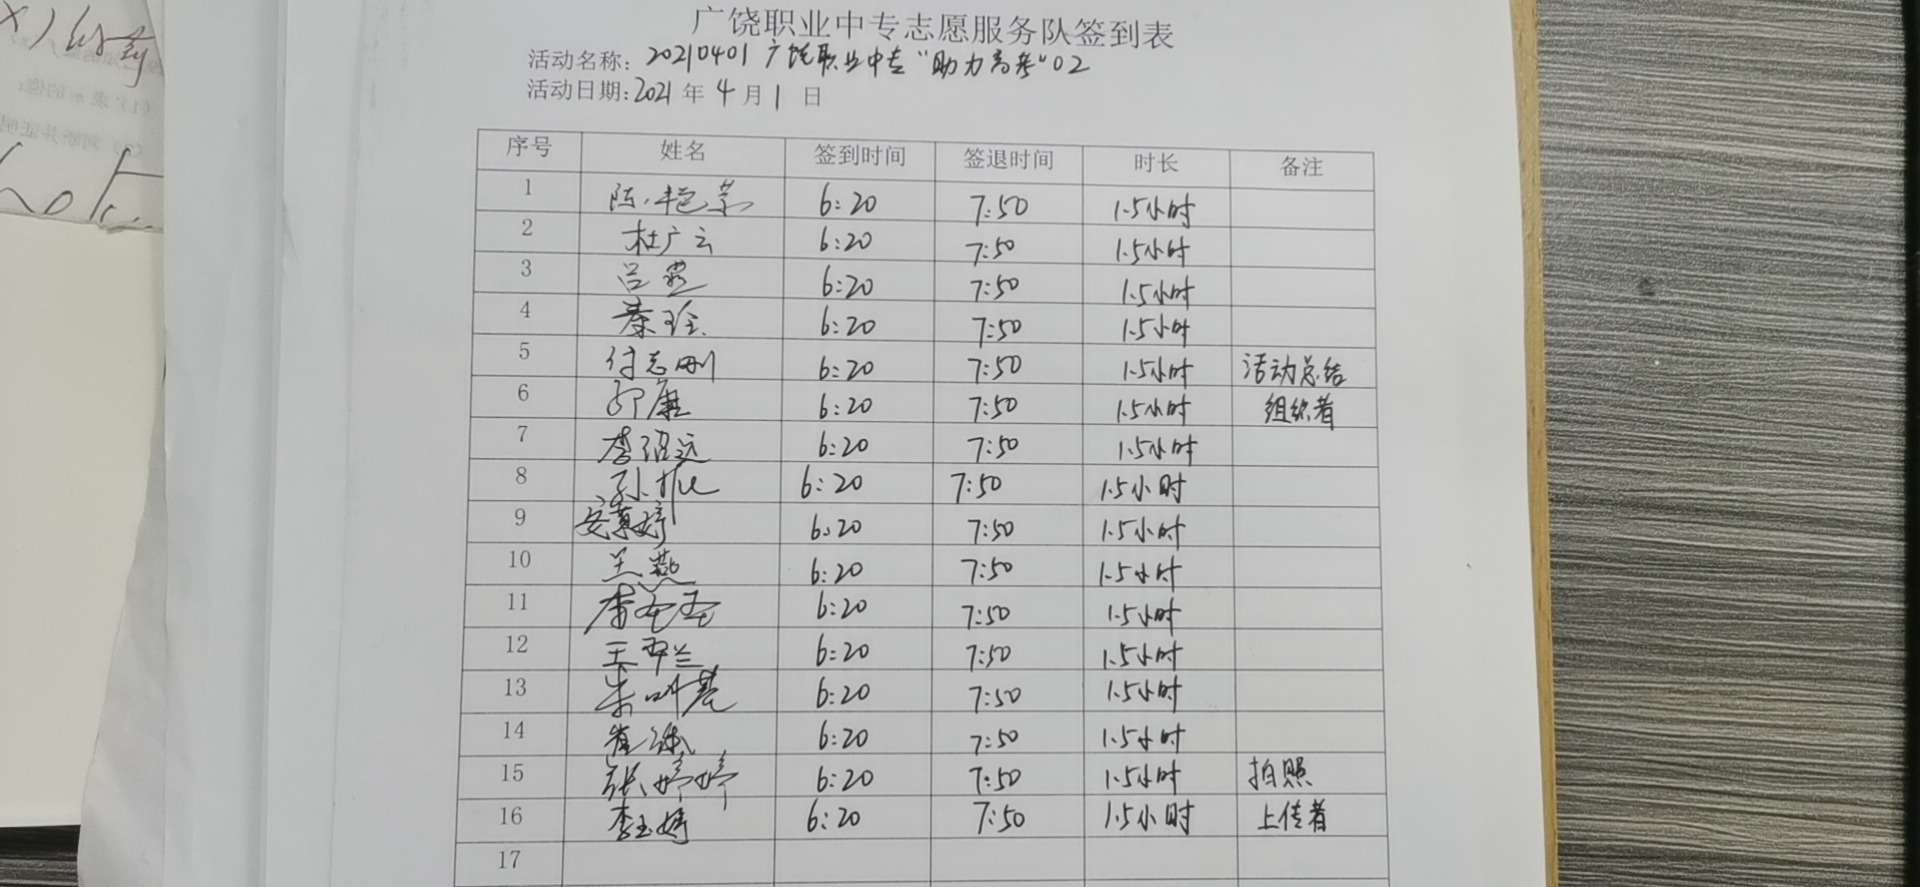 广饶职业中专志愿服务队签到表
活动名称: 20210401 广饶职业中专"助力高考"02
活动日期:2021 年 4 月 1 日
序号 姓名 签到时间 签退时间 时长 备注
1 陈艳荣 6:20 7:50 1.5小时
2 杜广云 6:20 7:50 1.5小时
3 吕燕 6:20 7:50 1.5小时
4 秦玲 6:20 7:50 1.5小时
5 付志刚 6:20 7:50 1.5小时 活动总结
6 6:20 7:50 1.5小时 组织者
7 李绍远 6:20 7:50 1.5小时
8 孙 6:20 7:50 1.5小时
9 安 婷 6:20 7:50 1.5小时
10 兰燕 6:20 7:50 1.5小时
11 李 6:20 7:50 1.5小时
12 王翠兰 6:20 7:50 1.5小时
13 6:20 7:50 1.5小时
14 崔 6:20 7:50 1.5小时
15 张婷婷 6:20 7:50 1.5小时 拍照
16 李玉婷 6:20 7:50 1.5小时 上传者
17